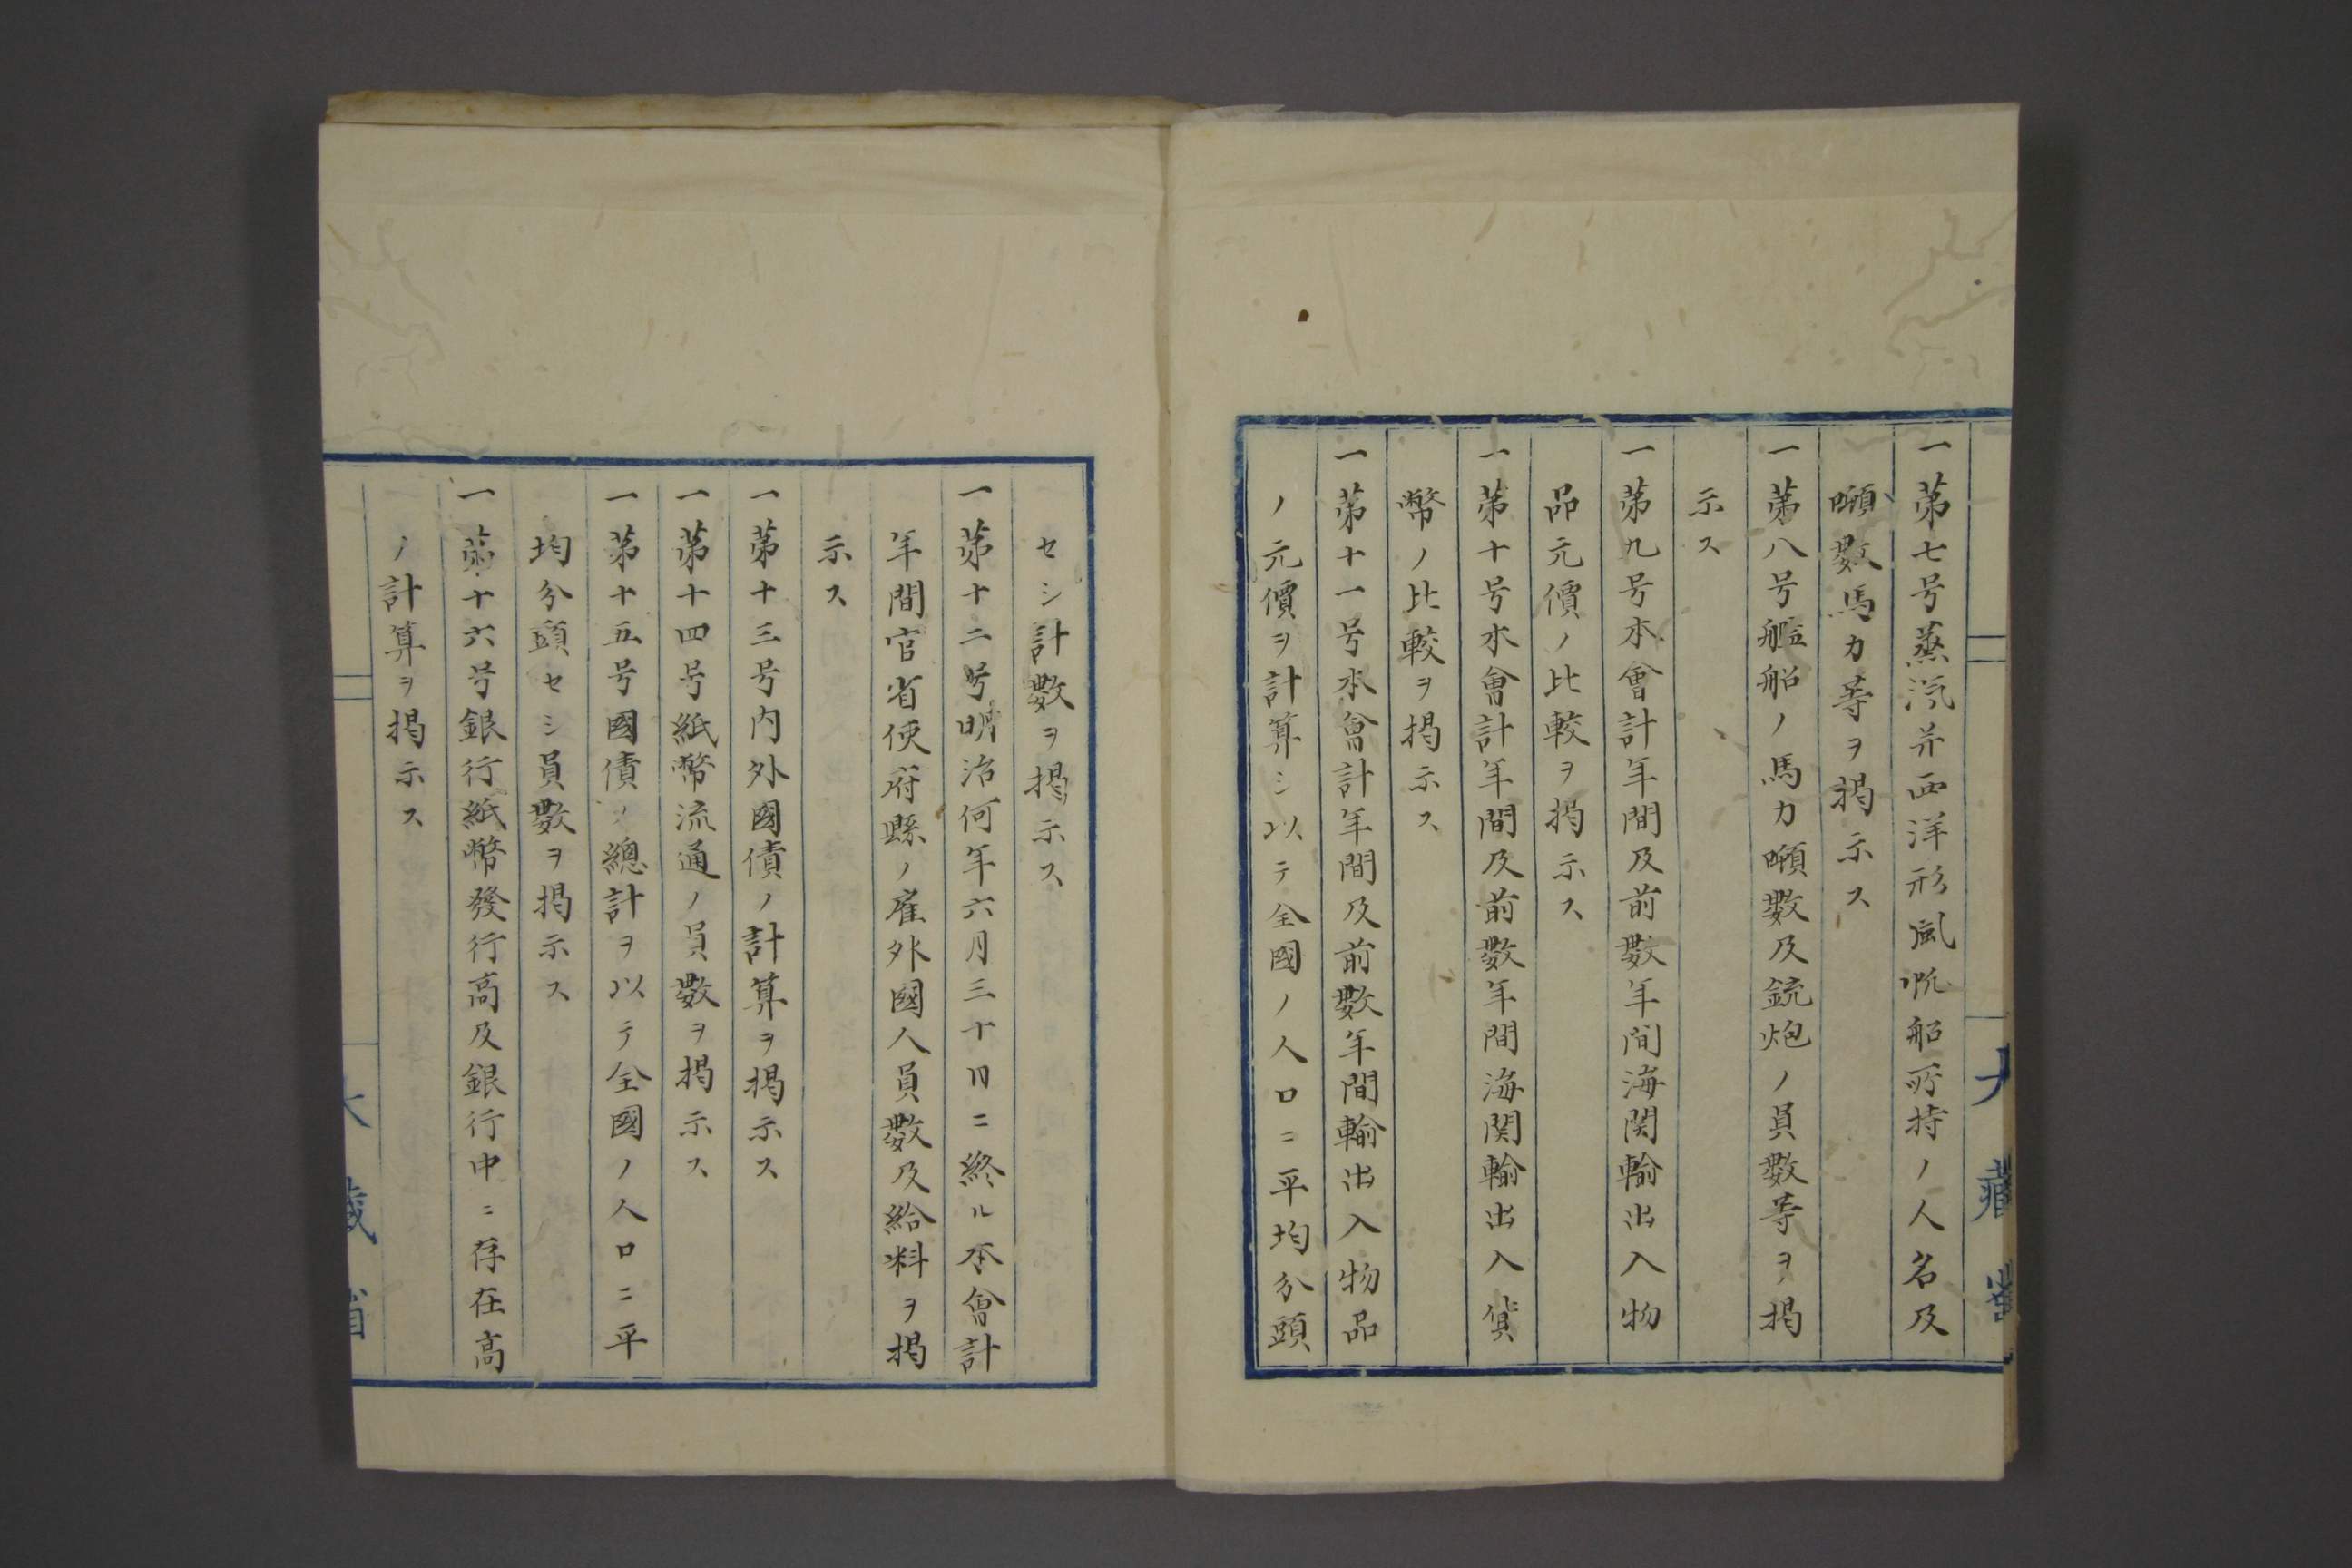 一第七号蒸汽并西洋形風帆船所持ノ人名及
噸數馬力等ヲ揭示ス
一第八号艦船ノ馬力噸數及銃炮ノ員數等ヲ揭
示ス
一第九号本會計年間及前數年间海関輸出入物
品元價ノ比較ヲ揭示ス
一第十号本會計年間及前數年間海関輸出入貨
幣ノ比較ヲ揭示ス
一第十一号本會計年間及前數年間輸出入物品
ノ元價ヲ計算シ以テ全國ノ人口ニ平均分頭
セシ計數ヲ揭示ス
一第十二号明治何年六月三十日ニ終ル本會計
年間官省使府縣ノ雇外國人員數及給料ヲ揭
示ス
一第十三号内外國債ノ計算ヲ揭示ス
一第十四号紙幣流通ノ員數ヲ揭示ス
一第十五号國債ノ總計ヲ以テ全國ノ人口ニ平
均分頭セシ員數ヲ揭示ス
一第十六号銀行紙幣發行高及銀行中ニ存在高
ノ計算ヲ揭示ス
大藏省